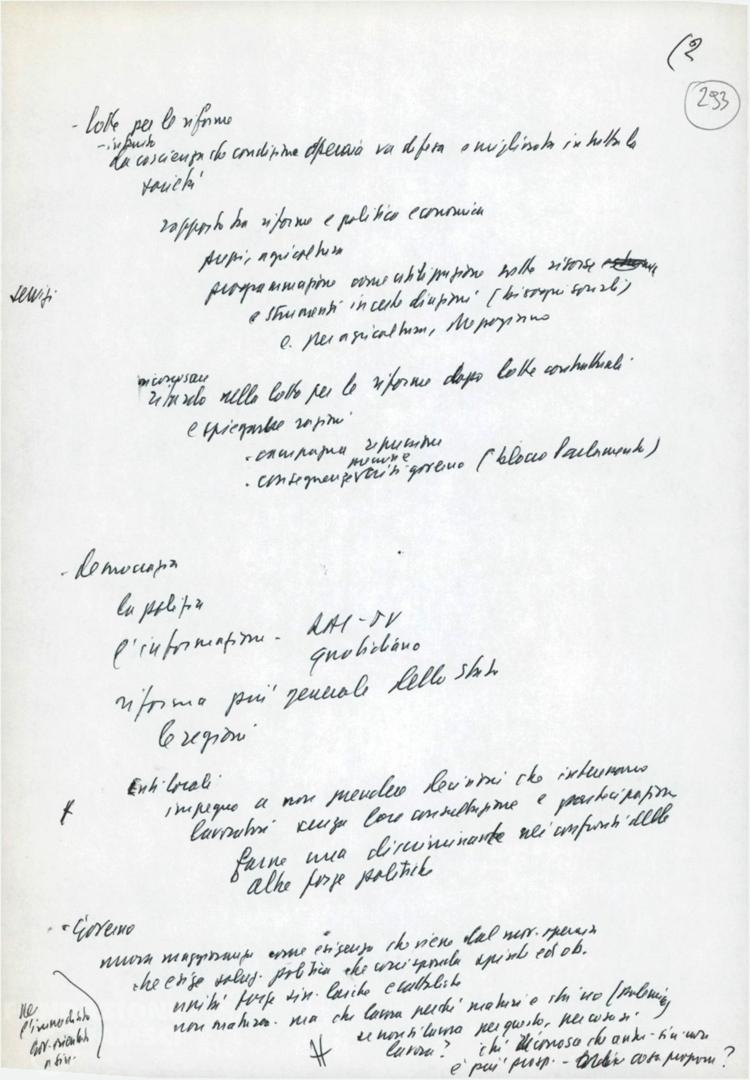 (2
293
- lotte per le riforme
- in quanto
la coscienza che condizione operaia va difesa e migliorata in tutta la
società
rapporto tra riforme e politica economica
prezzi, agricoltura
programmazione come utilizzazione risorse
servizi
e strumenti in certe direzioni (bisogni sociali)
e. per agricoltura, Mezzogiorno
ritardo nella lotta per le riforme dopo lotte contrattuali
e spiegarne ragioni
. campagna repressione
. conseguenze governo (blocco Parlamento)
- democrazia
la polizia
l'informazione - RAI-TV
quotidiano
riforma più generale dello stato
le regioni
Enti locali
impegno a non prendere decisioni che interessano
lavoratori senza loro consultazione e partecipazione
farne una discriminante nei confronti delle
altre forze politiche
- Governo
nuova maggioranza come esigenza che viene dal mov. operaio
che esige soluz. politica che corrisponda spinte ed ob.
unità forze sin. laiche e cattoliche
non matura. ma che lavora perché maturi e chi no
se non si lavora per questo, per cosa si
lavora? chi
è più - cosa propone?
nell'immediato
gov. orientato
a sin.